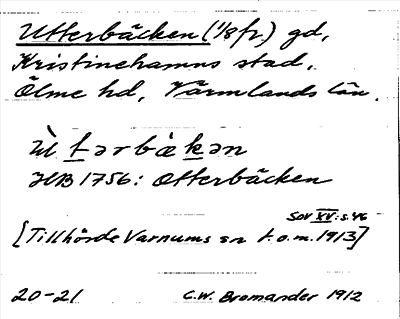 Utterbäcken (1/8 fr.) gd,
Kristinehamns stad,
Ölme hd, Värmlands län.
ùtərbàkən
JB 1756: Otterbäcken
SOV XV: s. 46
[Tillhörde Varnums sn t.o.m. 1913]
20-21 C.W. Bromander 1912